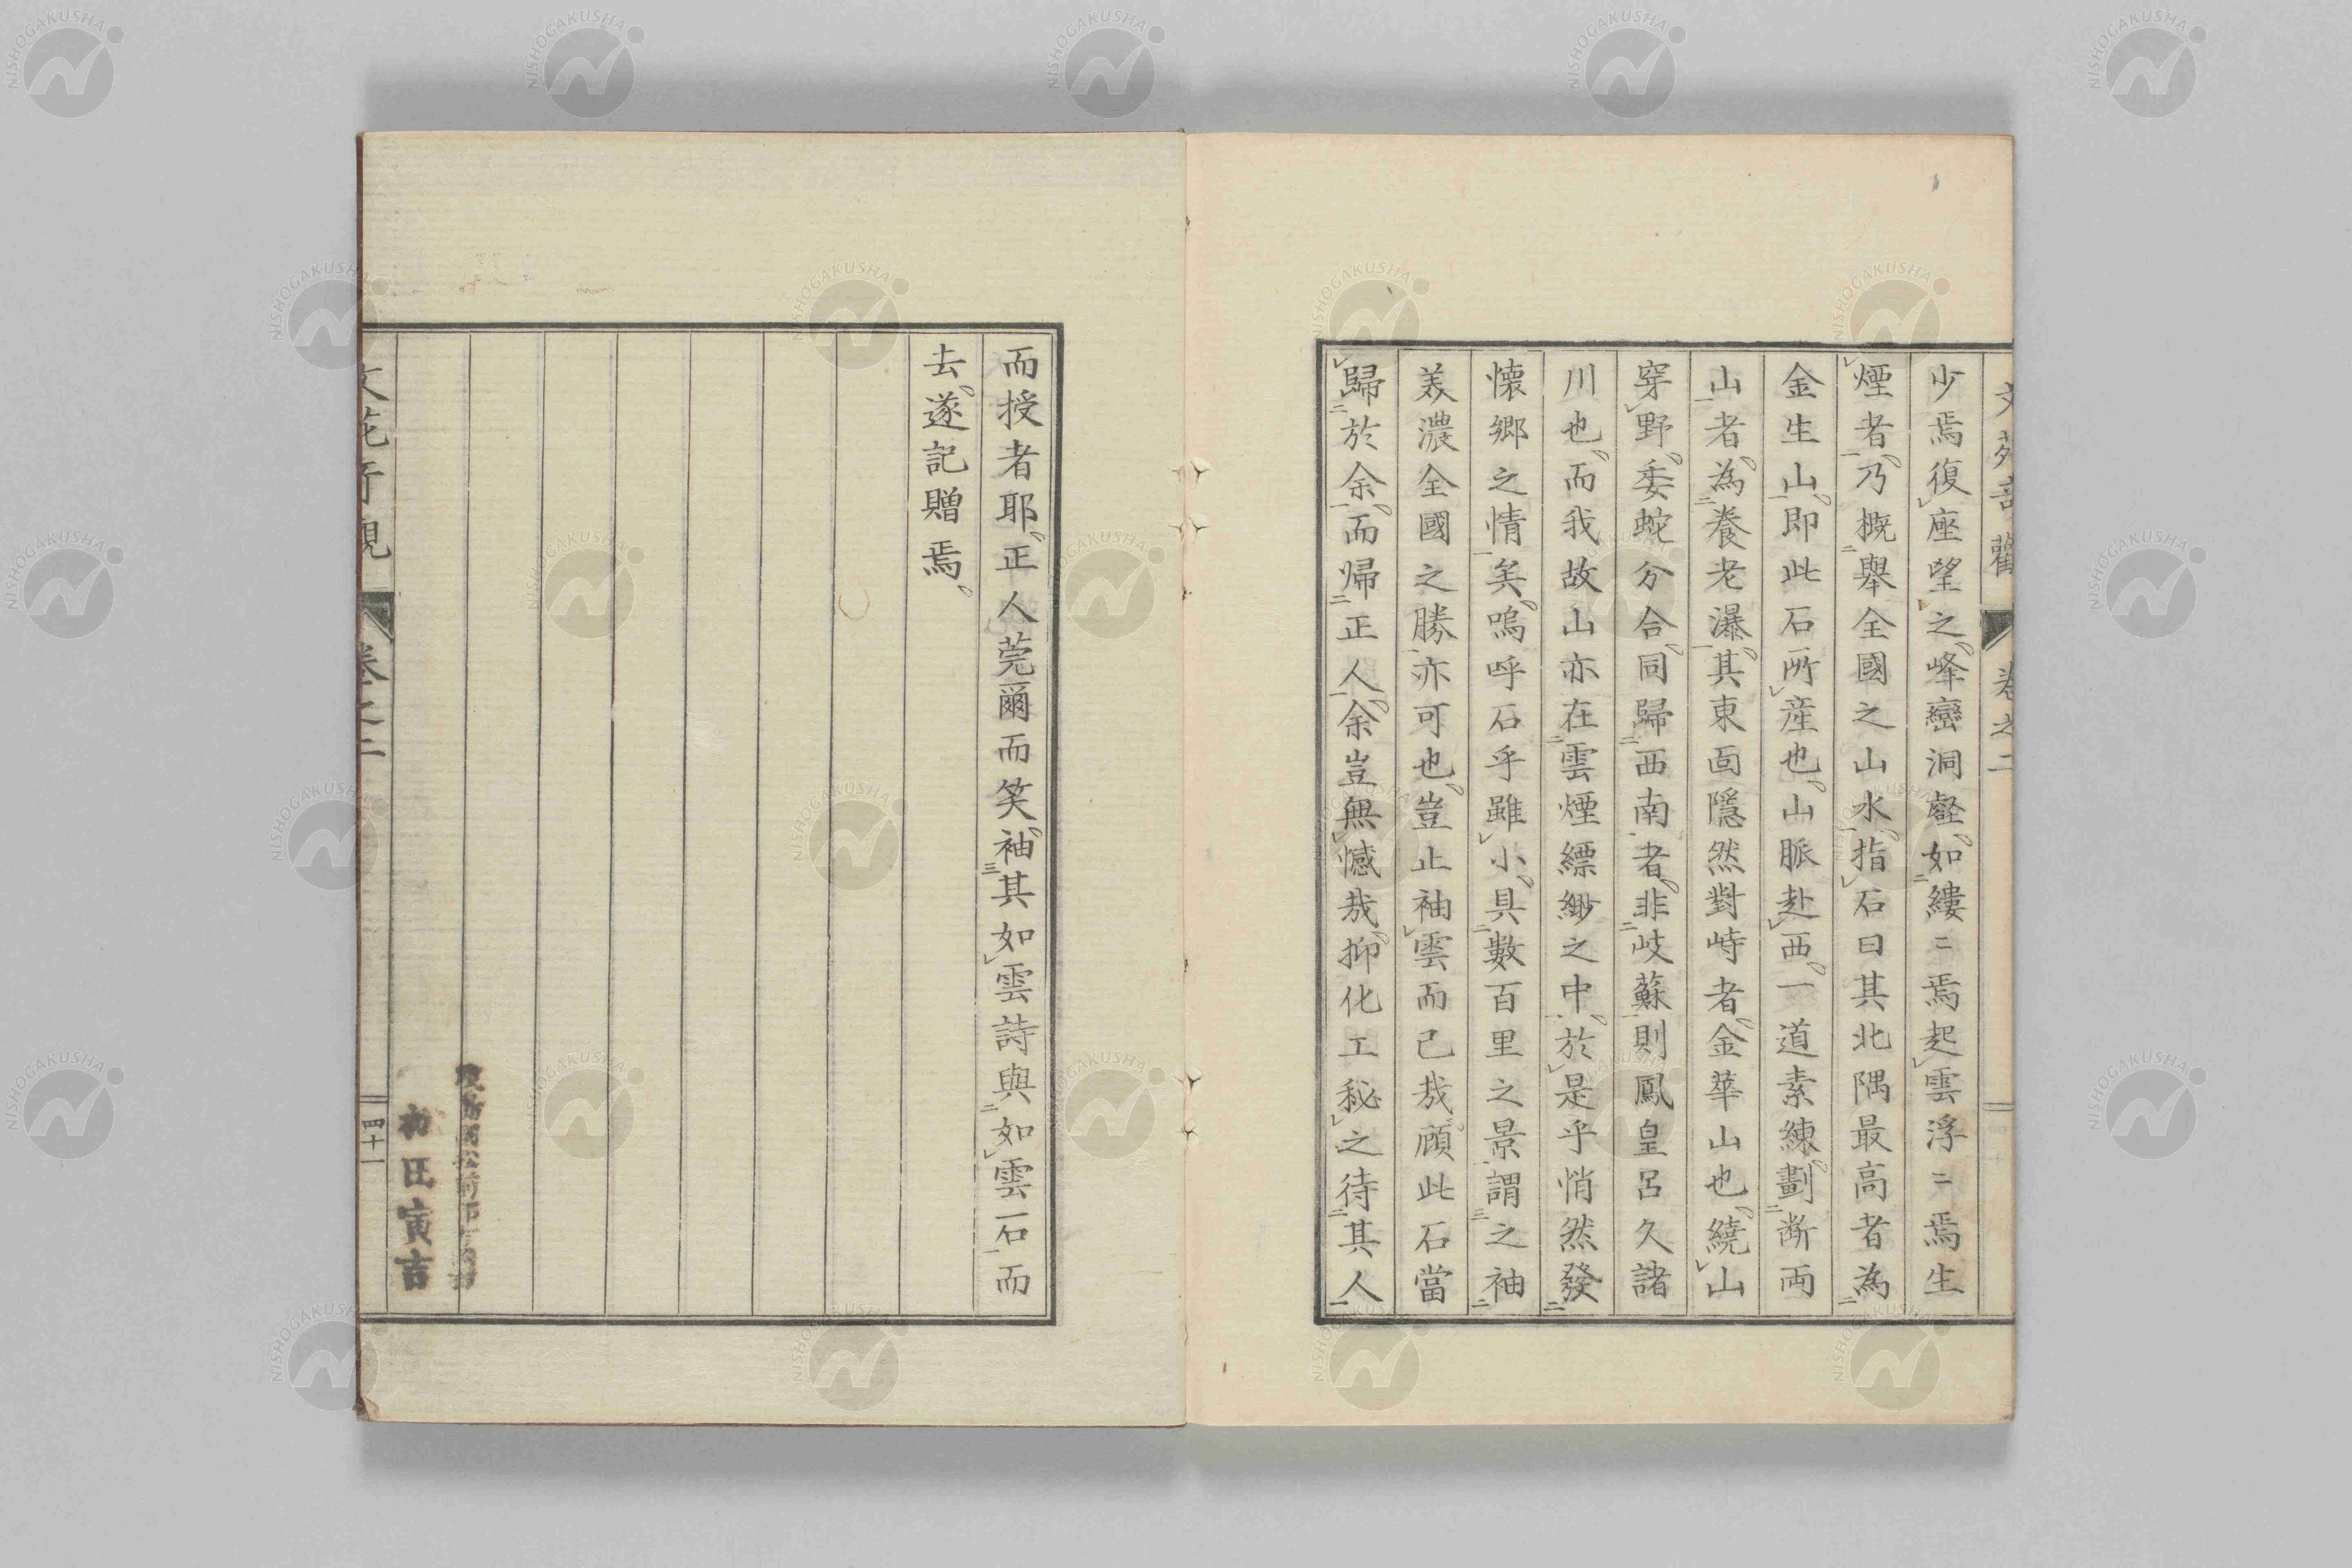 文苑奇觀 卷之二
少焉復座望之峰巒洞壑如縷〻焉起雲浮〻焉生
煙者乃概舉全國之山水指石曰其北隅最高者為
金生山即此石所産也山脈赴西一道素練劃断両
山者為養老瀑其東面隱然對峙者金華山也繞山
穿野委蛇分合同歸西南者非岐蘇則鳳皇呂久諸
川也而我故山亦在雲煙縹緲之中於是乎悄然發
懐鄉之情矣嗚呼石乎雖小具數百里之景謂之袖
美濃全國之勝亦可也豈止袖雲而已哉顧此石當
歸於余而帰正人余豈無憾哉抑化工秘之待其人
而授者耶正人莞爾而笑袖其如雲詩與如雲石而
去遂記贈焉
初田寅吉
卷之二
四十一
NISHOGAKUSHA